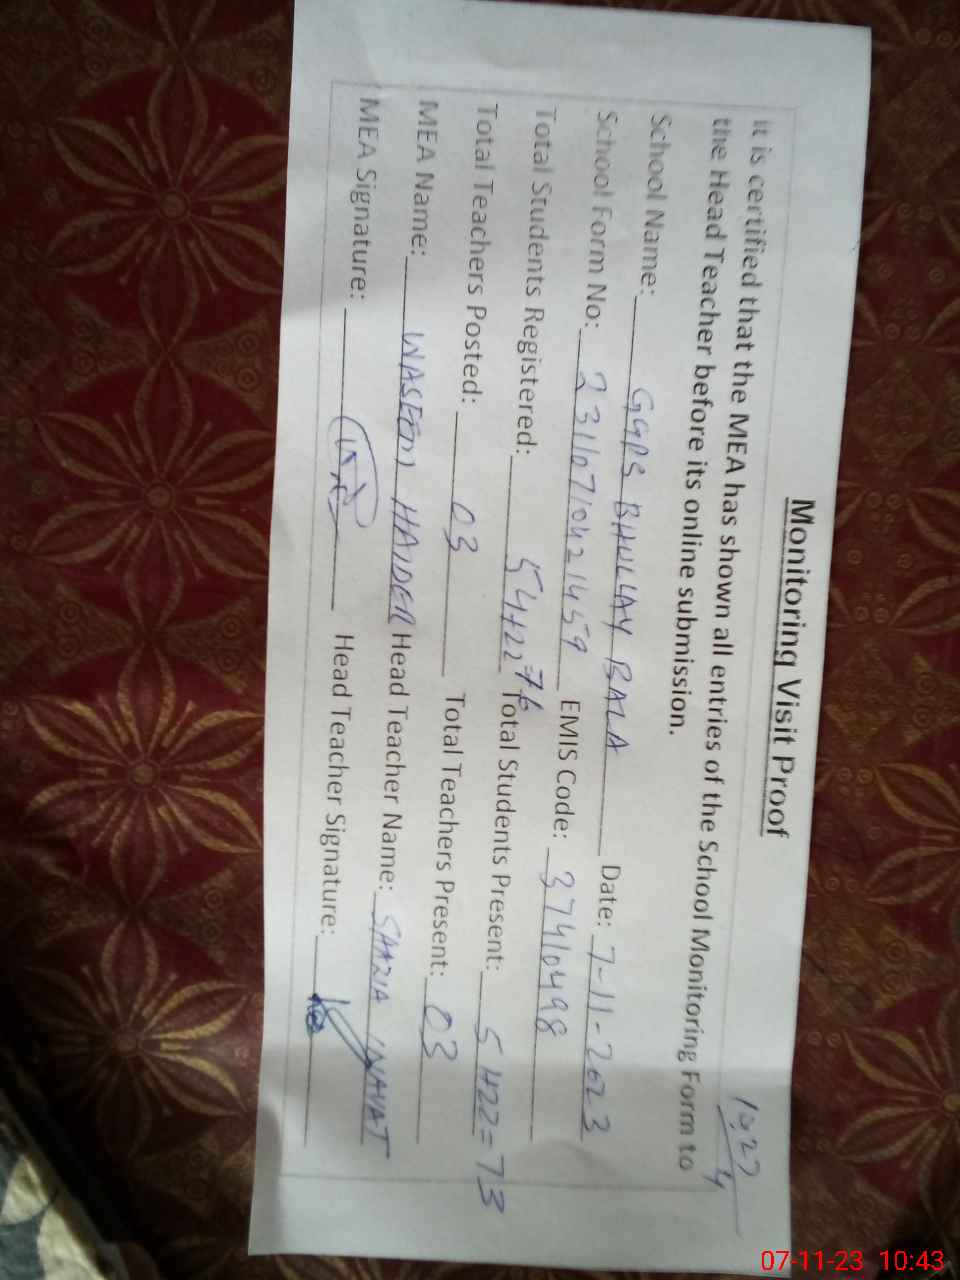 Monitoring Visit Proof
1027
4
it is certified that the MEA has shown all entries of the School Monitoring Form to
the Head Teacher before its online submission.
School Name: GGPS BHULLAY BALA Date: 7-11-2023
School Form No: 23110710421459 EMIS Code: 37410498
Total Students Registered: 54+22=76 Total Students Present: 5 +22=73
Total Teachers Posted: 03 Total Teachers Present: 03
MEA Name: WASEEM HAIDER Head Teacher Name: SHAZIA INAYAT
MEA Signature: Head Teacher Signature:
07-11-23 10:43